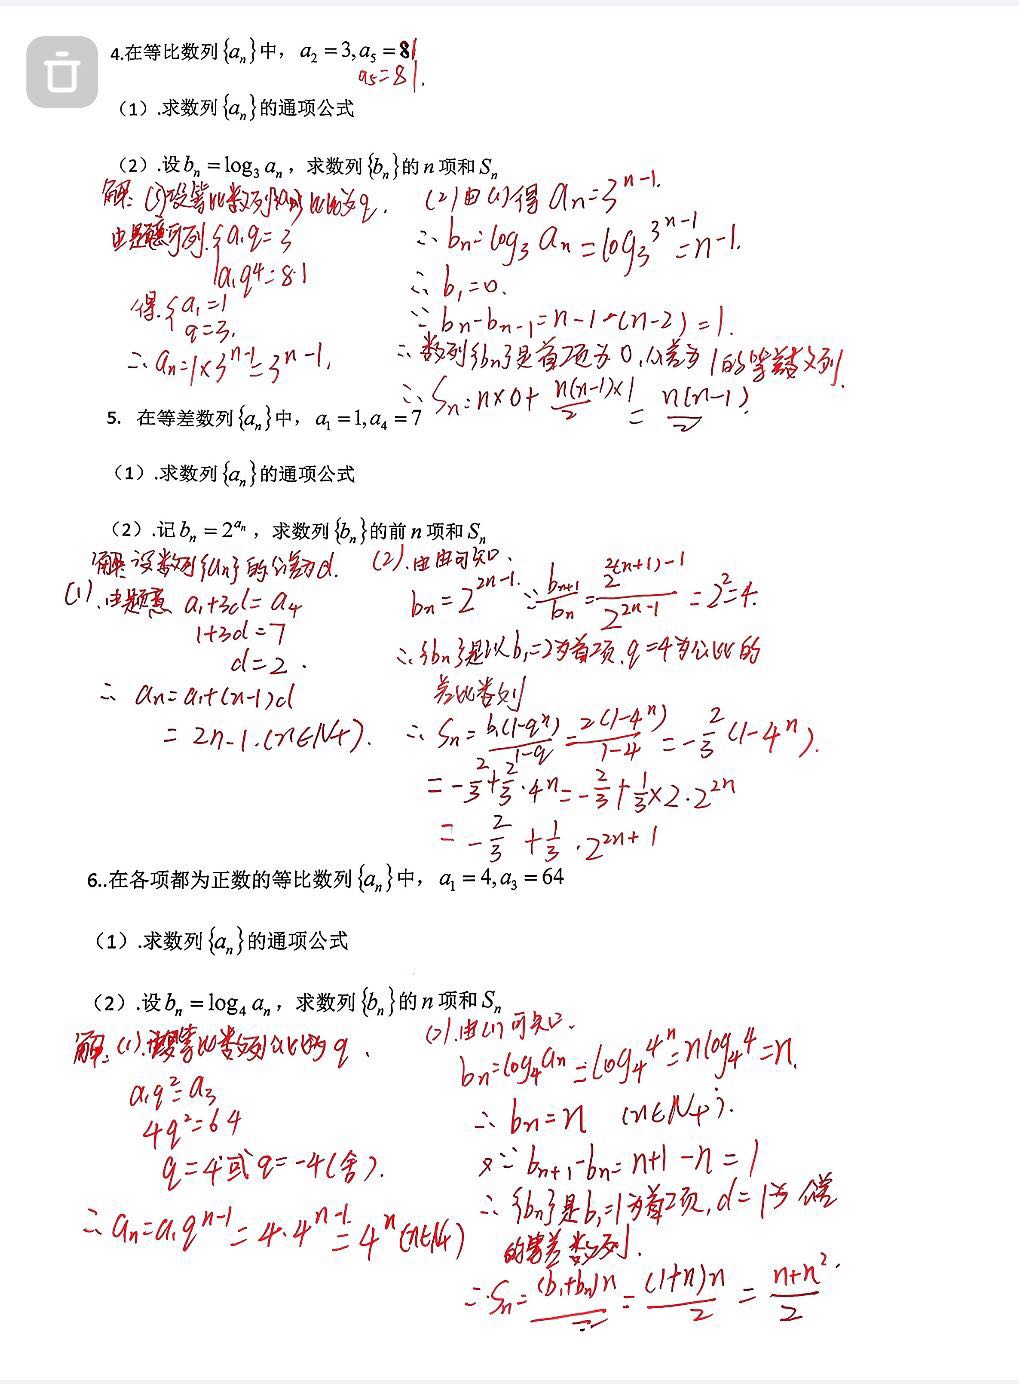 4.在等比数列{aₙ}中，a₂=3,a₅=81
a₅=81.
（1）.求数列{aₙ}的通项公式
（2）.设bₙ=log₃aₙ，求数列{bₙ}的n项和Sₙ
解：(1)设等比数列{aₙ}公比为q.
由题意可列{a₁q=3
a₁q⁴=81
得{a₁=1
q=3.
∴aₙ=1×3ⁿ⁻¹=3ⁿ⁻¹.
(2)由(1)得aₙ=3ⁿ⁻¹.
∴bₙ=log₃aₙ=log₃3ⁿ⁻¹=n-1.
∴b₁=0.
∵bₙ-bₙ₋₁=n-1-(n-2)=1.
∴数列{bₙ}是首项为0,公差为1的等差数列.
∴Sₙ=n×0+n(n-1)×1/2=n(n-1)/2
5. 在等差数列{aₙ}中，a₁=1,a₄=7
（1）.求数列{aₙ}的通项公式
（2）.记bₙ=2^(aₙ)，求数列{bₙ}的前n项和Sₙ
解:设数列{aₙ}的公差为d.
(1).由题意a₁+3d=a₄
1+3d=7
d=2.
∴aₙ=a₁+(n-1)d
=2n-1.(n∈N₊).
(2).由可知.
bₙ=2²ⁿ⁻¹ ∵bₙ₊₁/bₙ=2^(2(n+1)-1)/2^(2n-1)=2²=4.
∴{bₙ}是以b₁=2为首项.q=4为公比的
等比数列
∴Sₙ=b₁(1-qⁿ)/(1-q)=2(1-4ⁿ)/(1-4)=-2/3(1-4ⁿ).
=-2/3+2/3·4ⁿ=-2/3+1/3×2·2²ⁿ
=-2/3+1/3·2²ⁿ⁺¹
6..在各项都为正数的等比数列{aₙ}中，a₁=4,a₃=64
（1）.求数列{aₙ}的通项公式
（2）.设bₙ=log₄aₙ，求数列{bₙ}的n项和Sₙ
解:(1).设等比数列公比为q.
a₁q²=a₃
4q²=64
q=4或q=-4(舍).
∴aₙ=a₁qⁿ⁻¹=4·4ⁿ⁻¹=4ⁿ(n∈N₊)
(2).由(1)可知.
bₙ=log₄aₙ=log₄4ⁿ=nlog₄4=n.
∴bₙ=n (n∈N₊).
又∵bₙ₊₁-bₙ=n+1-n=1
∴{bₙ}是b₁=1为首项,d=1为公差
的等差数列.
∴Sₙ=(b₁+bₙ)n/2=(1+n)n/2=(n+n²)/2.